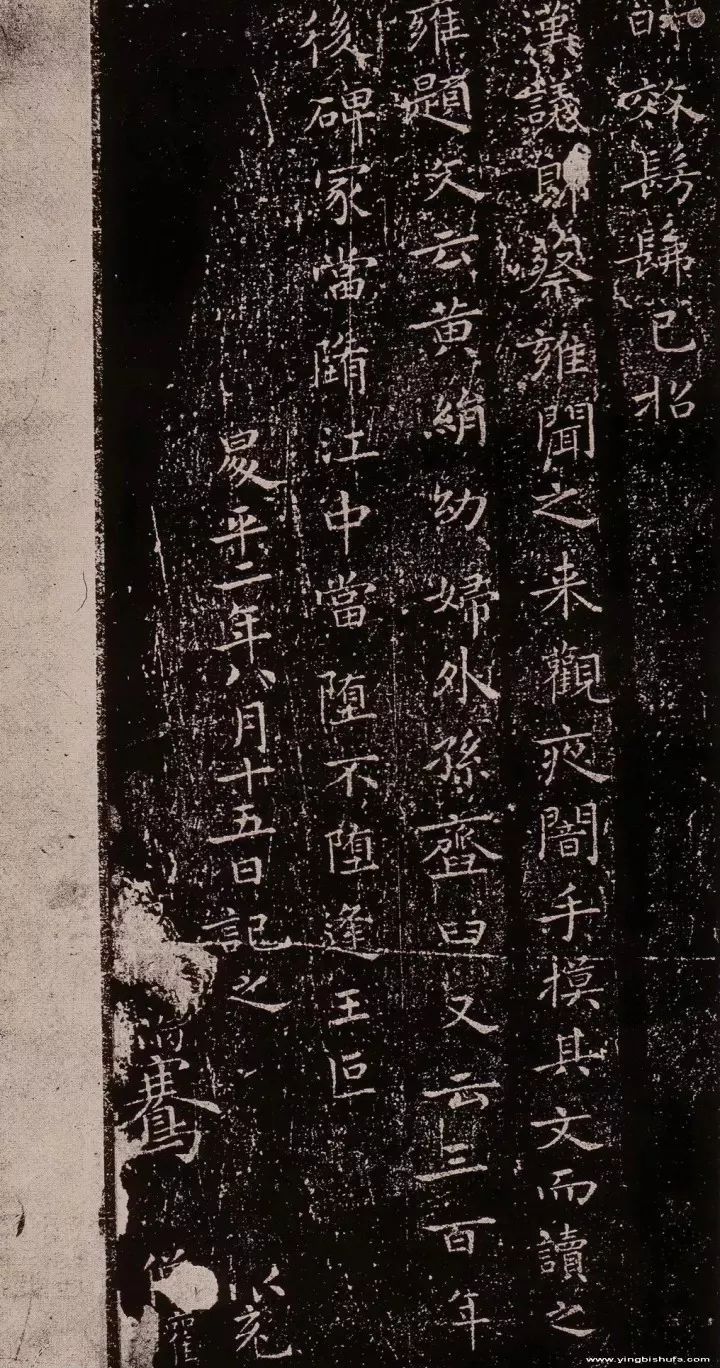 效髣髴已招
漢議郎蔡雍聞之来觀夜闇手摸其文而讀之
雍題文云黄絹幼婦外孫齏臼又云三百年
後碑冢當隋江中當堕不堕逢王叵
昇平二年八月十五日記之
騫
僧權
www.yingbishufa.com